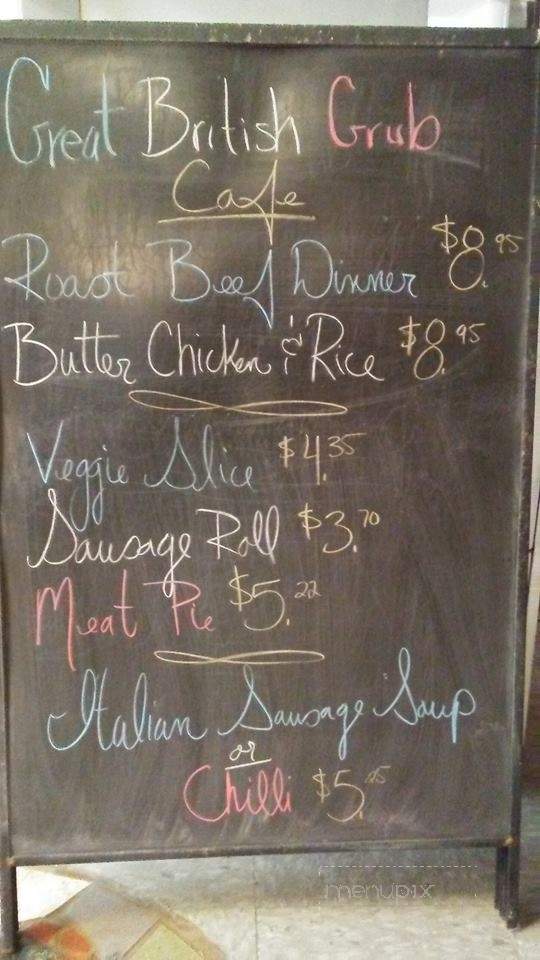 Great British Grub
Cafe
Roast Beef Dinner $8.95
Butter Chicken & Rice $8.95
Veggie Slice $4.35
Sausage Roll $3.70
Meat Pie $5.22
Italian Sausage Soup
or
Chilli $5.
menupix